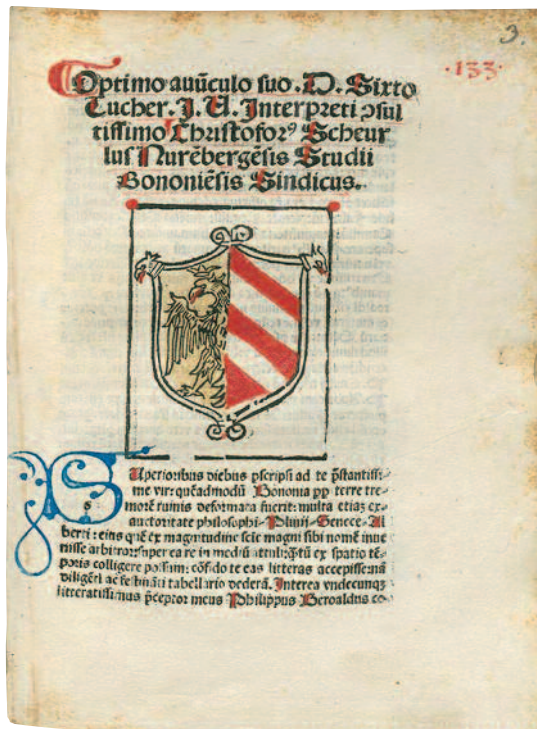 3.
·133·
Optimo auūculo suo. D. Sixto
Tucher. J. U. Interpreti ꝯsul
tissimo Christoforꝰ Scheur
lus Nurēbergēsis Studii
Bononiēsis Sindicus.
SUperioribus diebus pscripsi ad te p̄stantissi-
me vir: quēadmodū Bononia pp terre tre-
morē ruinis deformata fuerit: multa etiaꝫ ex
auctoritate philosophi-Plinij-Senece-Al
berti: eius quē ex magnitudine scie magni sibi nomē inue
nisse arbitror: super ea re in mediū attuli: q̄tū ex spatio tē-
poris colligere possum: cōfido te eas litteras accepisse: nā
diligēti ac festināti tabellario dederā. Interea vndecunqꝫ
litteratissimus p̄ceptor meus Philippus Beroaldus co-